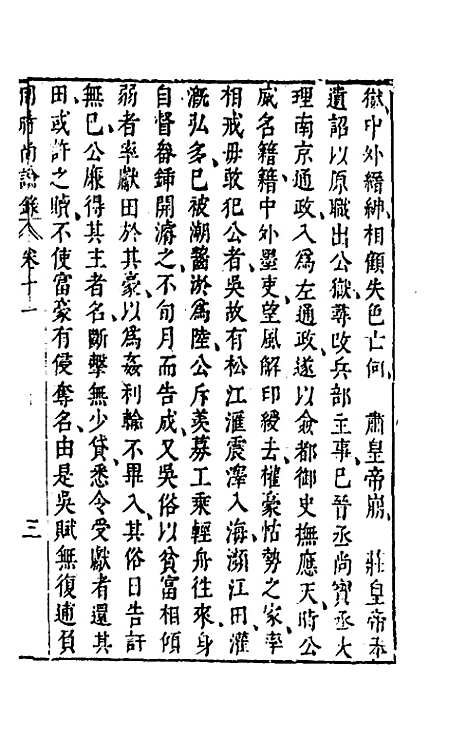 獄中外縉紳相顧失色亡何　肅皇帝崩　莊皇帝奉
遺詔以原職出公獄尋改兵部主事已晉丞尚寶丞大
理南京通政入為左通政遂以僉都御史撫應天時公
威名籍籍中外墨吏望風解印綬去權豪怙勢之家率
相戒毋敢犯公者吳故有松江滙震澤入海瀕江田灌
溉弘多已被潮齧淤為陸公斥羨募工乘輕舟往來身
自督畚鍤開濬之不旬月而告成又吳俗以貧富相傾
弱者率獻田於其豪以為姦利輸不畢入其俗日告訐
無已公廉得其主者名斷擊無少貸悉令受獻者還其
田或許之贖不使富豪有侵奪名由是吳賦無復逋負
卷十一
三